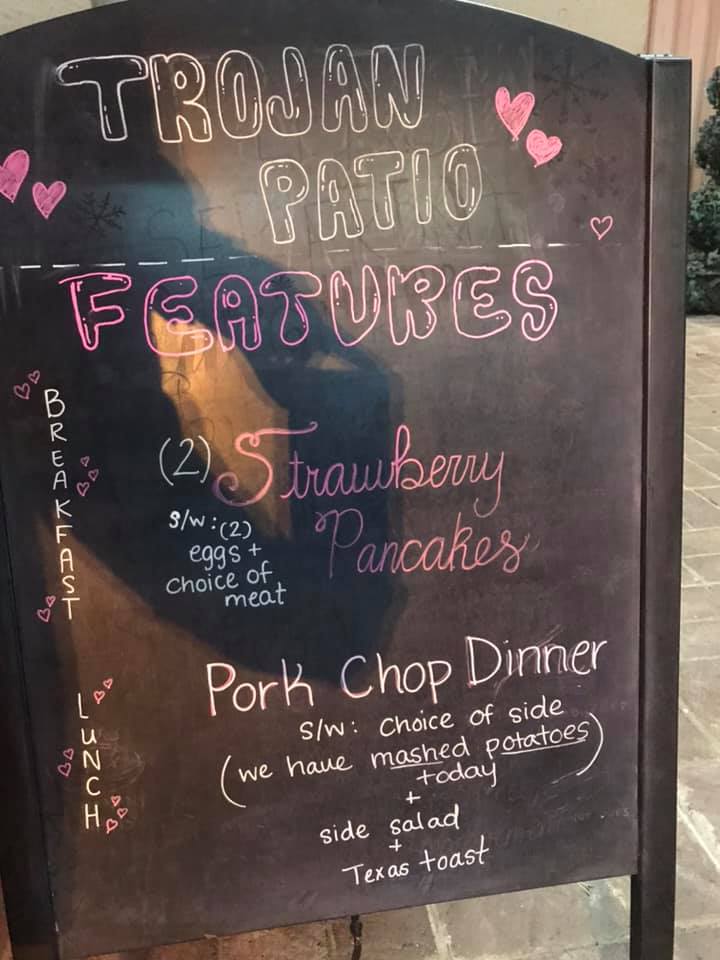 TROJAN
PATIO
FEATURES
BREAKFAST
(2) Strawberry
Pancakes
s/w: (2)
eggs +
choice of
meat
LUNCH
Pork Chop Dinner
s/w: choice of side
(we have mashed potatoes)
today
+
side salad
+
Texas toast